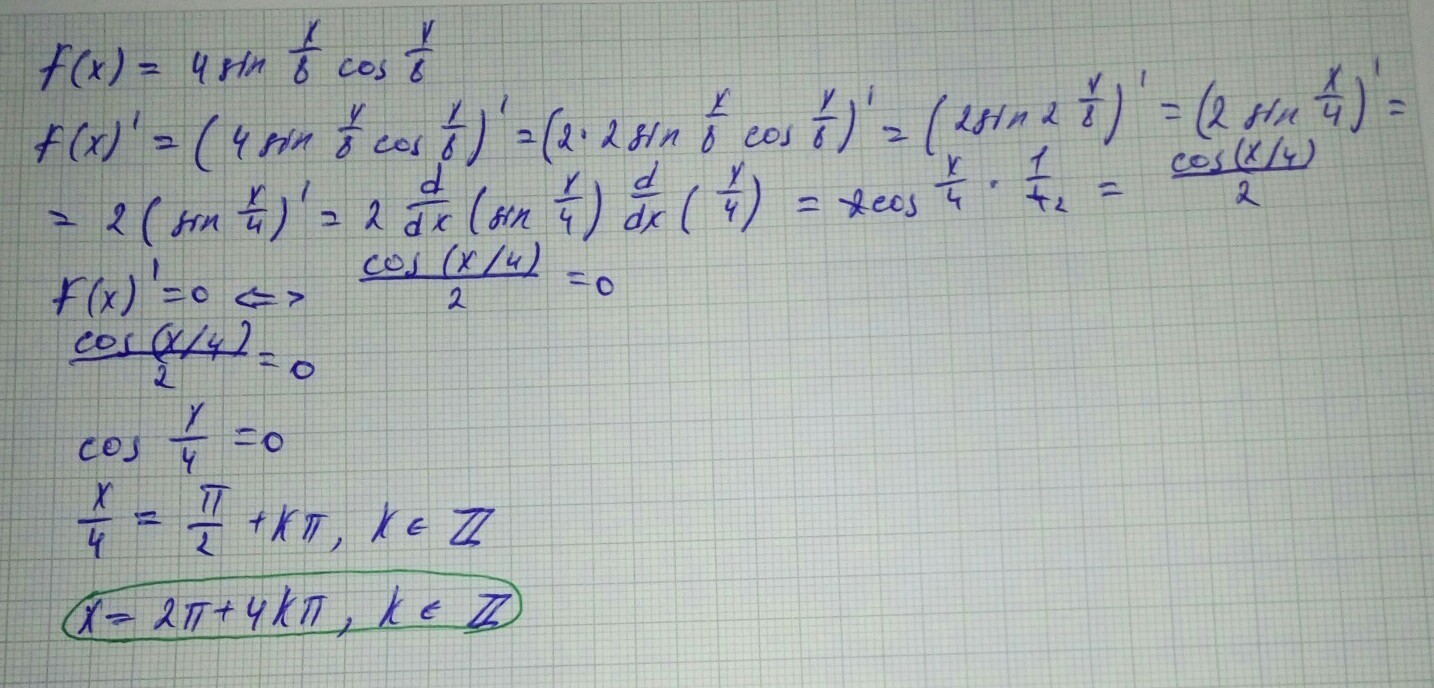 f(x) = 4 sin x/8 cos x/8
f(x)' = (4 sin x/8 cos x/8)' = (2 · 2 sin x/8 cos x/8)' = (2 sin 2 x/8)' = (2 sin x/4)' =
= 2 (sin x/4)' = 2 d/dx (sin x/4) d/dx (x/4) = 2cos x/4 · 1/4 2 = cos(x/4)/2
f(x)' = 0 <=> cos(x/4)/2 = 0
cos(x/4)/2 = 0
cos x/4 = 0
x/4 = π/2 + kπ, k ∈ ℤ
x = 2π + 4kπ, k ∈ ℤ